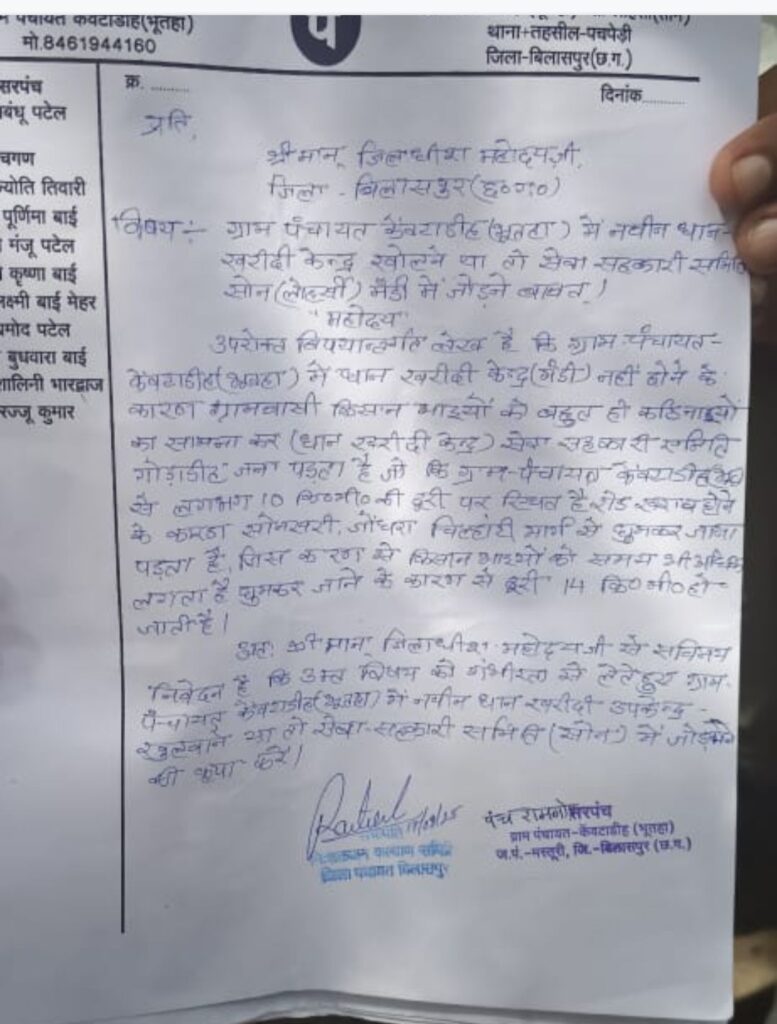 म पंचायत केवटाडीह(भूतहा)
मो.8461944160
प
थाना+तहसील-पचपेड़ी
जिला-बिलासपुर(छ.ग.)
क्र. ..........
दिनांक............
सरपंच
बंधू पटेल
चगण
ज्योति तिवारी
पूर्णिमा बाई
मंजू पटेल
कृष्णा बाई
लक्ष्मी बाई मेहर
प्रमोद पटेल
बुधवारा बाई
शालिनी भारद्वाज
रज्जू कुमार
प्रति,
श्रीमान् जिलाधीश महोदयजी,
जिला - बिलासपुर(छ०ग०)
विषय:- ग्राम पंचायत केंवटाडीह(भूतहा) में नवीन धान-
खरीदी केन्द्र खोलने या तो सेवा सहकारी समिति
सोन(लोहर्सी) मंडी में जोड़ने बाबत्।
"महोदय"
उपरोक्त विषयान्तर्गत लेख है कि ग्राम पंचायत-
केंवटाडीह(भूतहा) में धान खरीदी केन्द्र(मंडी) नहीं होने के
कारण ग्रामवासी किसान भाइयों को बहुत ही कठिनाइयों
का सामना कर (धान खरीदी केन्द्र) सेवा सहकारी समिति
गोड़ाडीह जना पड़ता है जो कि ग्राम-पंचायत केंवटाडीह
से लगभग 10 कि०मी० की दूरी पर स्थित है, रोड खराब होने
के कारण सोनसरी, जोंधरा चिल्हाटी मार्ग से घुमकर जाना
पड़ता है, जिस कारण से किसान भाइयों को समय भी अधिक
लगता है घुमकर जाने के कारण से दूरी 14 कि०मी० हो-
जाती है।
अतः श्रीमान् जिलाधीश महोदयजी से सविनय
निवेदन है कि उक्त विषय को गंभीरता से लेते हुए ग्राम-
पंचायत केंवटाडीह(भूतहा) में नवीन धान खरीदी उपकेन्द्र-
खुलवाने या तो सेवा-सहकारी समिति(सोन) में जोड़ने
की कृपा करें।
सभापति
जिला पंचायत बिलासपुर
सरपंच
ग्राम पंचायत-केंवटाडीह (भूतहा)
ज.पं.-मस्तूरी, जि.-बिलासपुर (छ.ग.)